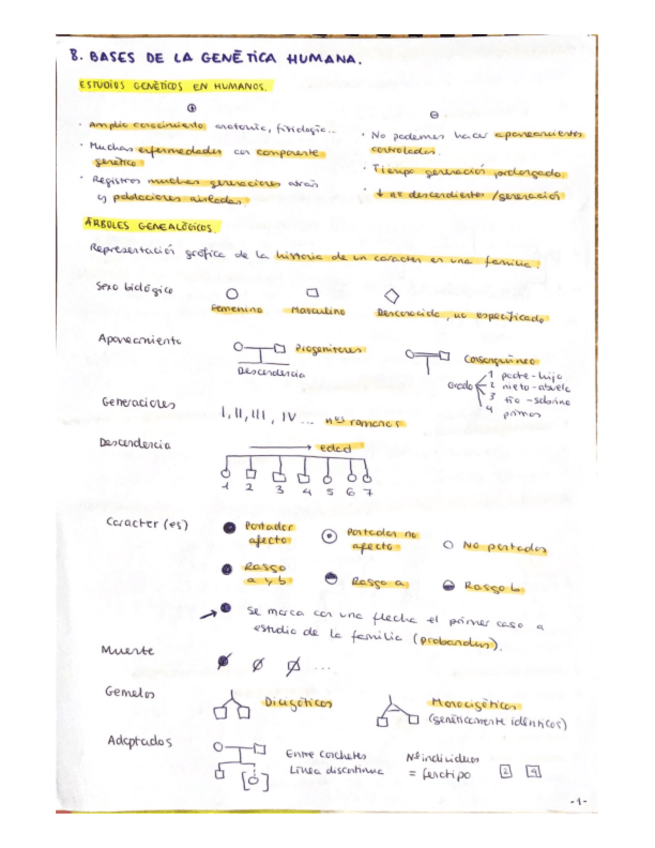 8. BASES DE LA GENÉTICA HUMANA.
ESTUDIOS GENÉTICOS EN HUMANOS.
+
-
· Amplio conocimiento anatomía, fisiología...
· Muchas enfermedades con componente genético
· Registros muchas generaciones atrás y poblaciones aisladas.
· No podemos hacer apareamientos controlados.
· Tiempo generación prolongado.
· ↓ nº descendientes/generación
ÁRBOLES GENEALÓGICOS.
Representación gráfica de la historia de un caracter en una familia.
Sexo biológico
Femenino
Masculino
Desconocido, no especificado
Apareamiento
Progenitores
Descendencia
Consanguíneo
Grado
1 padre-hijo
2 nieto-abuelo
3 tío-sobrino
4 primos
Generaciones
I, II, III, IV... nos romanos
Descendencia
→ edad
1 2 3 4 5 6 7
Caracter (es)
Portador afecto
Portador no afecto
No portador
Rasgo a y b
Rasgo a
Rasgo b
Se marca con una flecha el primer caso a
estudio de la familia (probandus).
Muerte
...
Gemelos
Dicigóticos
Monocigóticos
(genéticamente idénticos)
Adoptados
Entre corchetes
Línea discontinua
Nº individuos
= fenotipo
2 4
-1-